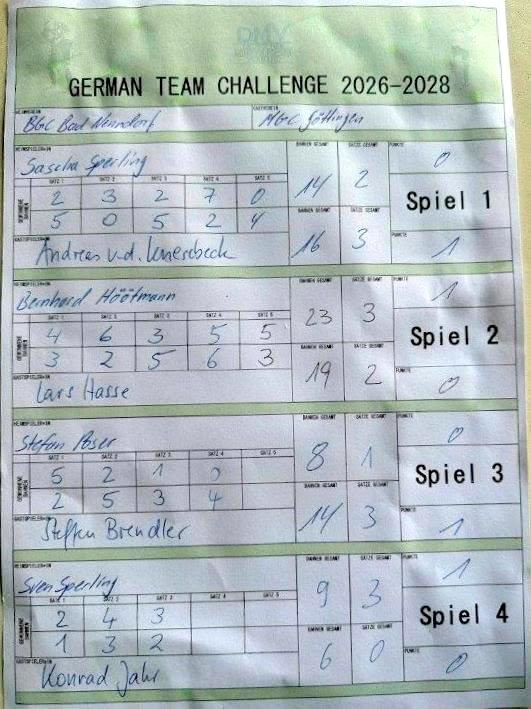 DMV
GERMAN TEAM CHALLENGE 2026-2028
HEIMVEREIN GASTVEREIN
BGC Bad Nenndorf MGC Göttingen
HEIMSPIELER*IN BAHNEN GESAMT SÄTZE GESAMT PUNKTE
Sascha Sperling 14 2 0
SATZ 1 SATZ 2 SATZ 3 SATZ 4 SATZ 5
GEWONNENE BAHNEN
2 3 2 7 0
Spiel 1
5 0 5 2 4
BAHNEN GESAMT SÄTZE GESAMT PUNKTE
GASTSPIELER*IN 16 3 1
Andreas v.d.
HEIMSPIELER*IN BAHNEN GESAMT SÄTZE GESAMT PUNKTE
Bernhard Höötmann 23 3 1
SATZ 1 SATZ 2 SATZ 3 SATZ 4 SATZ 5
GEWONNENE BAHNEN
4 6 3 5 5
Spiel 2
3 2 5 6 3
BAHNEN GESAMT SÄTZE GESAMT PUNKTE
GASTSPIELER*IN 19 2 0
Lars Hasse
HEIMSPIELER*IN BAHNEN GESAMT SÄTZE GESAMT PUNKTE
Stefan Poser 8 1 0
SATZ 1 SATZ 2 SATZ 3 SATZ 4 SATZ 5
GEWONNENE BAHNEN
5 2 1 0
Spiel 3
2 5 3 4
BAHNEN GESAMT SÄTZE GESAMT PUNKTE
GASTSPIELER*IN 14 3 1
Steffen Brendler
HEIMSPIELER*IN BAHNEN GESAMT SÄTZE GESAMT PUNKTE
Sven Sperling 9 3 1
SATZ 1 SATZ 2 SATZ 3 SATZ 4 SATZ 5
GEWONNENE BAHNEN
2 4 3
Spiel 4
1 3 2
BAHNEN GESAMT SÄTZE GESAMT PUNKTE
GASTSPIELER*IN 6 0 0
Konrad Jahr